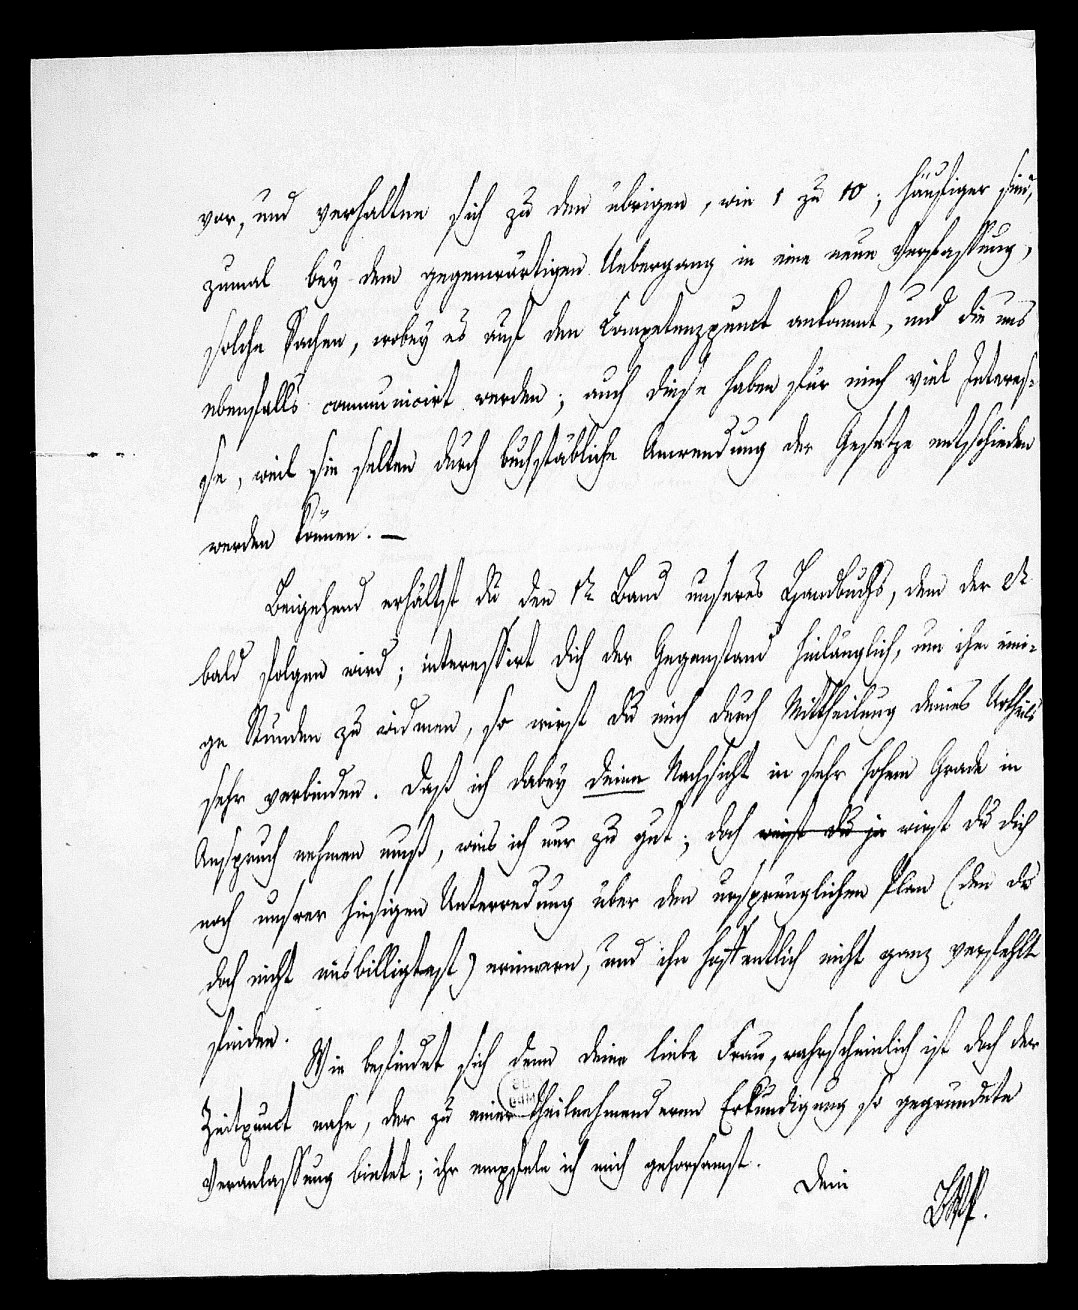 vor, und verhalten sich zu den übrigen, wie 1 zu 10; häufiger sind,
zumal bey dem gegenwärtigen Uebergang in eine neue Verfassung,
solche Sachen, wobey es auf den Competenzpunct ankommt, und die uns
ebenfalls communicirt werden; auch diese haben für mich viel Interes-
se, weil sie selten durch buchstäbliche Anwendung der Gesetze entschieden
werden können. —
Beigehend erhältst du den 1n Band unseres Handbuchs, dem der 2te
bald folgen wird; interessirt dich der Gegenstand hinlänglich, um ihm eini-
ge Stunden zu widmen, so wirst du mich durch Mittheilung deines Urtheils
sehr verbinden. Daß ich dabey deine Nachsicht in sehr hohem Grade in
Anspruch nehmen muß, weis ich nur zu gut; doch wirst du ja wirst du dich
noch unsrer hiesigen Unterredung über den ursprünglichen Plan (den du
doch nicht misbilligtest) erinnern, und ihn hoffentlich nicht ganz verfehlt
finden.
Wie befindet sich denn deine liebe Frau, wahrscheinlich ist doch der
Zeitpunct nahe, der zu einer theilnehmenderen Erkundigung so gegründete
Veranlassung bietet; ihr empfele ich mich gehorsamst.
Dein